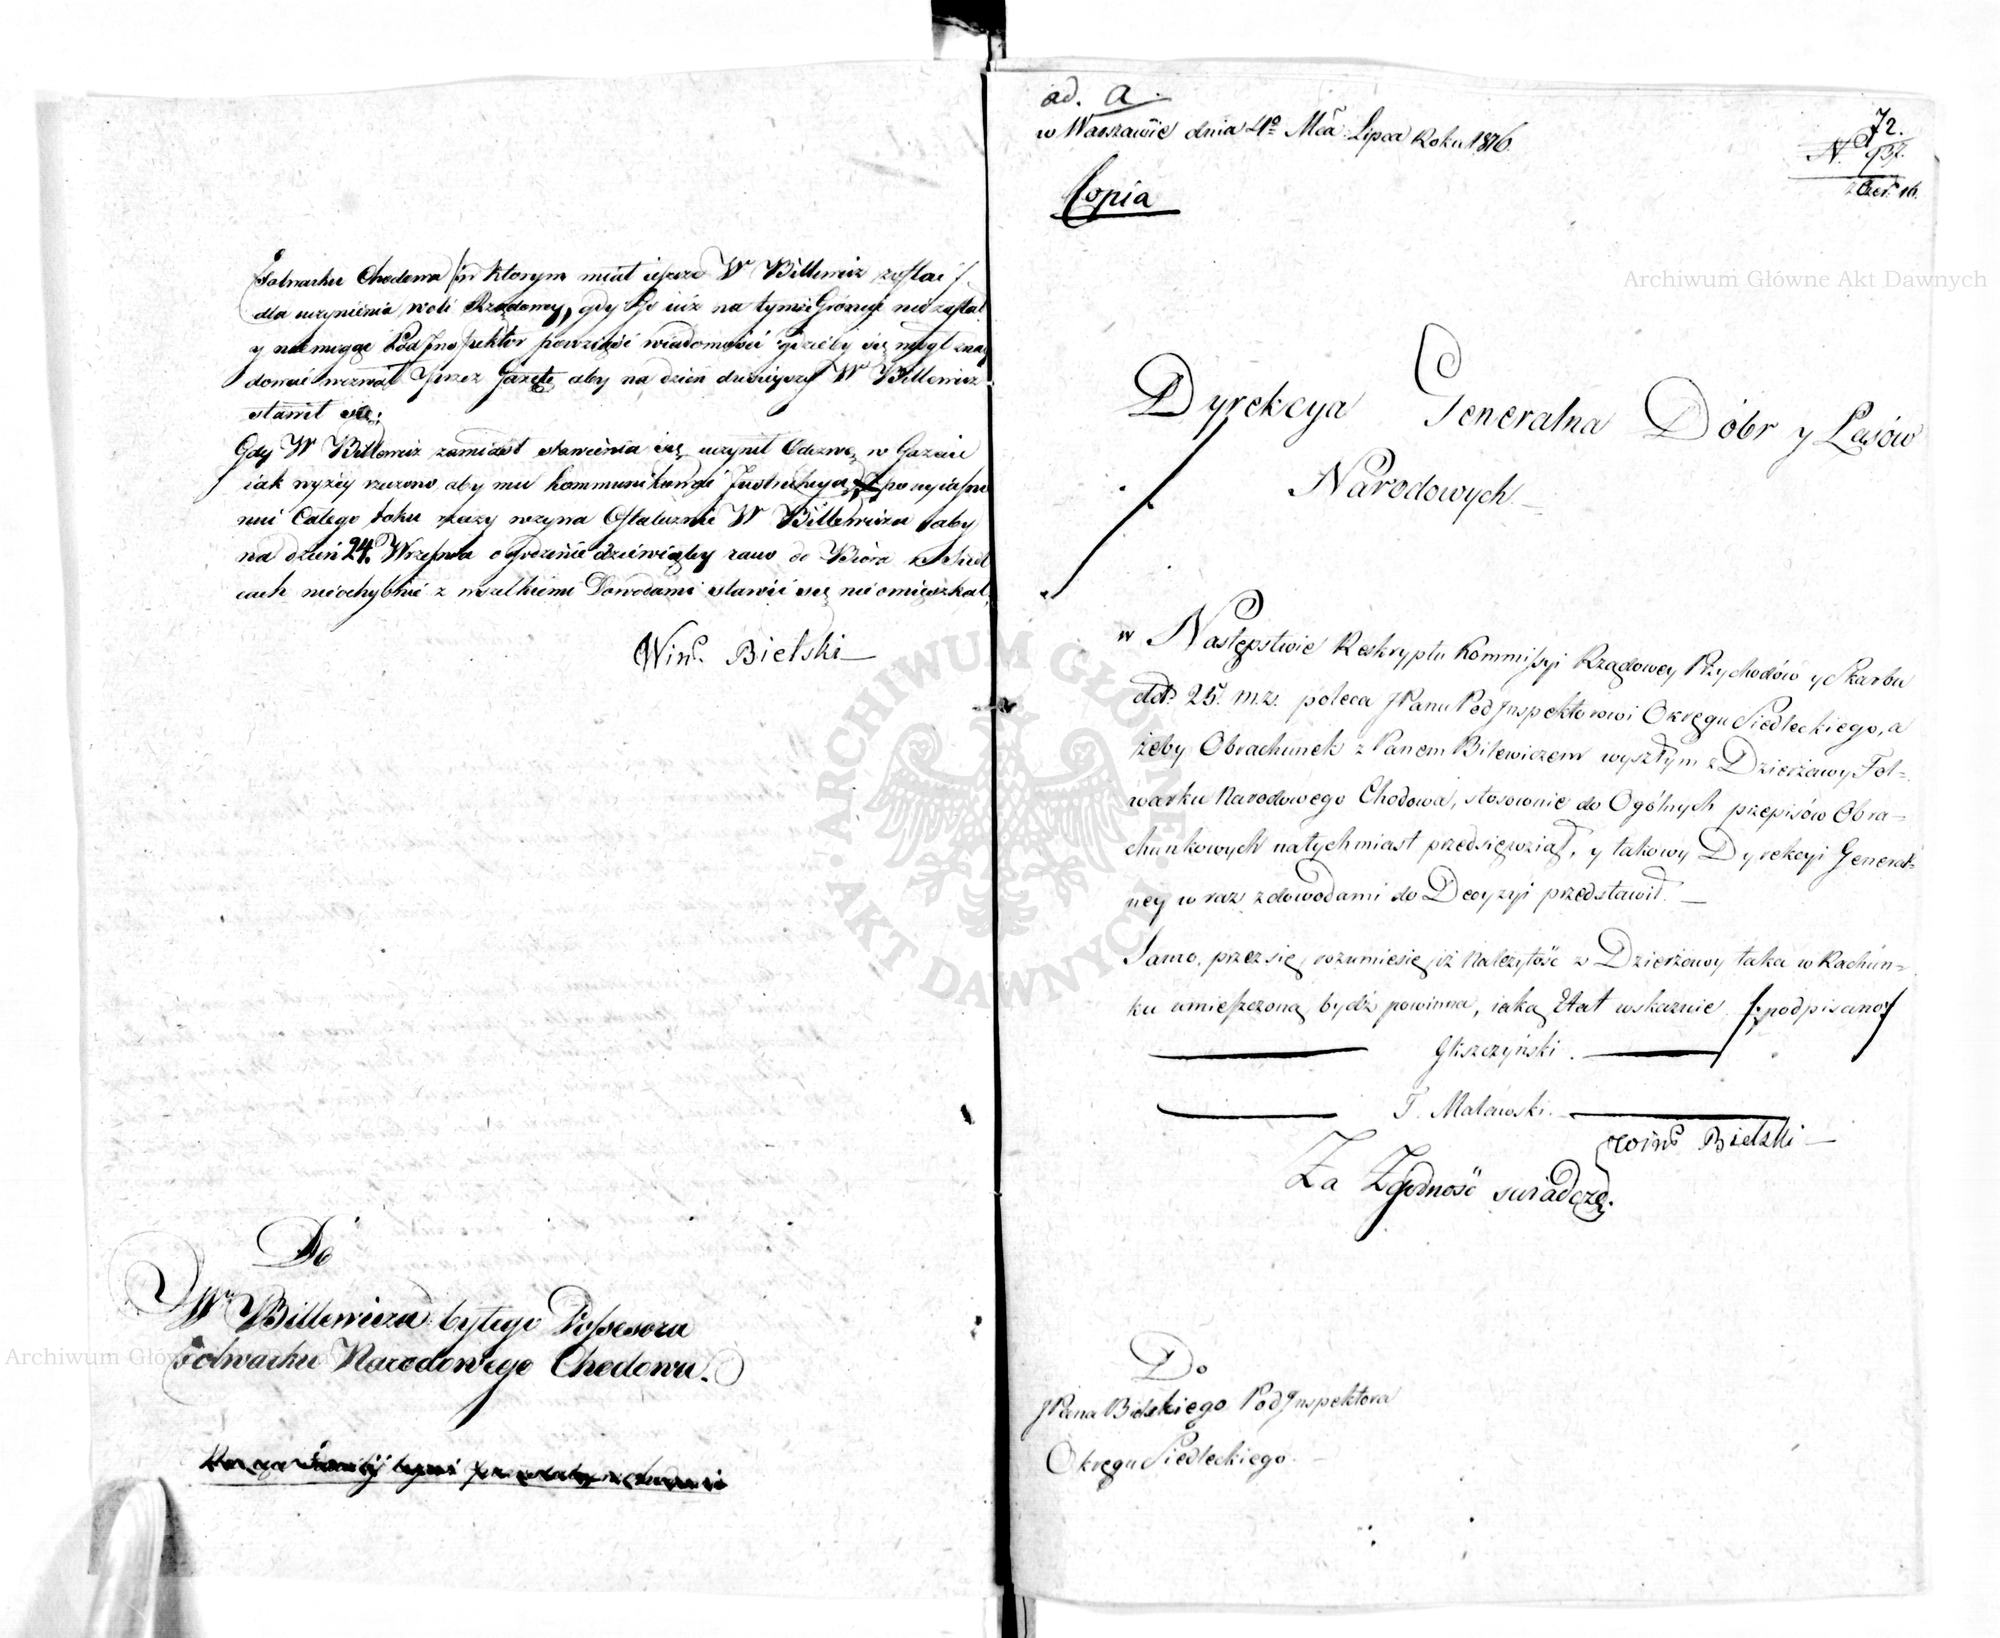 Folwarku Chodowa /:w ktorym miał ieszcze W Billewicz zostać:/
dla uczynienia woli Rządowey, gdy Go iuż na tymże Gróncie nie zastał
y nie mogąc Pod Inspektor powziąść wiadomości gdzieby się mógł znay
dować wezwał przez Gazetę aby na dzień dzisieyszy Wny Billewicz
stawił się;
Gdy W Billewicz zamiast stawienia się uczynił Odezwę w Gazecie
iak wyżey rzeczono, aby mu kommunikować Instrukcyą, po wyiaśnie
niu Całego toku rzeczy wzywa Ostatecznie W Billewicza aby
na dzień 24. Września o godzinie dziewiątey rano do Bióra w Siedl
cach niechybnie z wszelkiemi Dowodami stawić się nie omieszkał.
Winc. Bielski
Do
W Billewicza byłego Possesora
Folwarku Narodowego Chodowa.
ad. a.
w Warszawie dnia 4º Mca Lipca Roku 1816.
72.
N. 937.
Copia
Dyrekcya Generalna Dóbr y Lasów
Narodowych
w Następstwie Reskryptu Kommissyi Rządowey Przychodów y Skarbu
ddt. 25. m.z. poleca JPanu PodJnspektorowi Okręgu Siedleckiego, a
żeby Obrachunek z Panem Bilewiczem wyszłym z Dzierżawy Fol=
warku Narodowego Chodowa, stosownie do Ogólnych przepisów Obra=
chunkowych natychmiast przedsięwziął, y takowy Dyrekcyi General=
ney wraz z dowodami do Decyzyi przedstawił. —
Samo przez się rozumie się iż Należytość z Dzierżawy taka w Rachun=
ku umieszczoną bydź powinna, iaką Etat wskaznie /:podpisano:/
Gliszczyński.
T. Małewski.
Winc Bielski
Za Zgodność swiadczę.
Do
JPana Bielskiego PodJnspektora
Okręgu Siedleckiego.
Archiwum Główne Akt Dawnych
Archiwum Główne Akt Dawnych
ARCHIWUM GŁÓWNE AKT DAWNYCH